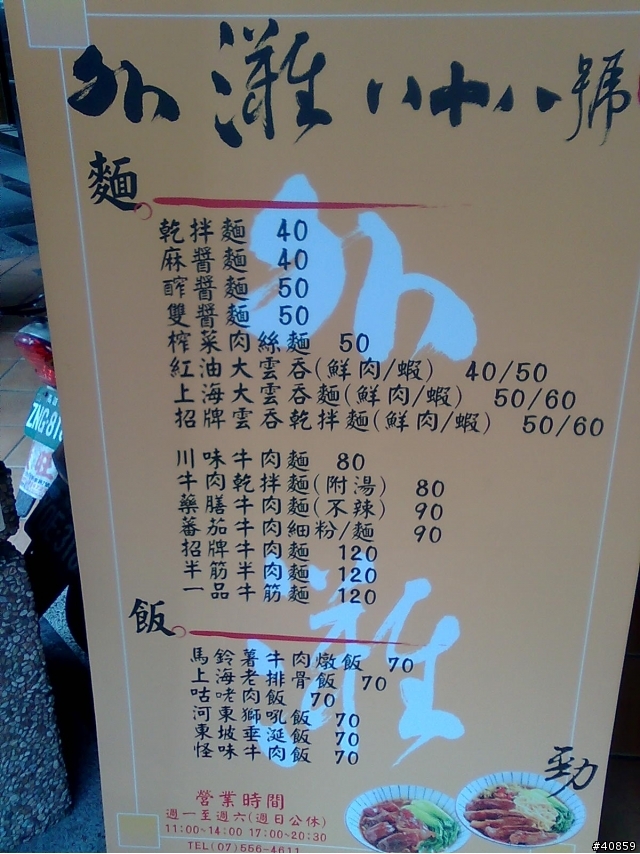 外灘八十八號
麵
乾拌麵 40
麻醬麵 40
酢醬麵 50
雙醬麵 50
榨菜肉絲麵 50
紅油大雲吞(鮮肉/蝦) 40/50
上海大雲吞麵(鮮肉/蝦) 50/60
招牌雲吞乾拌麵(鮮肉/蝦) 50/60
川味牛肉麵 80
牛肉乾拌麵(附湯) 80
藥膳牛肉麵(不辣) 90
蕃茄牛肉細粉/麵 90
招牌牛肉麵 120
半筋半肉麵 120
一品牛筋麵 120
飯
馬鈴薯牛肉燉飯 70
上海老排骨飯 70
咕咾肉飯 70
河東獅吼飯 70
東坡垂涎飯 70
怪味牛肉飯 70
外灘
勁
營業時間
週一至週六(週日公休)
11:00~14:00 17:00~20:30
TEL(07)556-4611
#40859